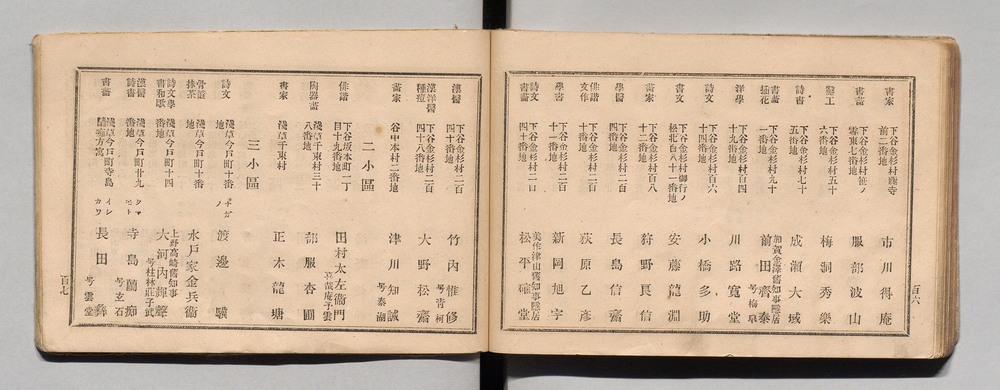 書家 下谷金杉村西念寺前二番地 市川得庵
書畫 下谷金杉村笹ノ雪東七番地 服部波山
醫工 下谷金杉村五十六番地 梅洞秀樂
詩書 下谷金杉村七十五番地 成瀬大域
書畫插花 下谷金杉村九十一番地 加賀金澤舊知事隱居 前田齊泰 号梅皐
洋學 下谷金杉村百四十九番地 川路寛堂
詩文 下谷金杉村百六十四番地 小橋多助
書文 下谷金杉村御行ノ松北百八十一番地 安藤龍淵
書家 下谷金杉村百八十二番地 狩野良信
學醫 下谷金杉村二百四番地 長島信齋
俳諧文作 下谷金杉村二百十番地 荻原乙彦
學書 下谷金杉村二百十一番地 新岡旭宇
詩文學書 下谷金杉村二百四十番地 美作津山舊知事隱居 松平確堂
百六
漢醫 下谷金杉村二百四十番地 竹内惟修 号青柯
漢洋醫種痘 下谷金杉村二百四十八番地 大野松齋
畫家 谷中本村二番地 津川知誠 号泰湖
二小區
俳諧 下谷坂本町二丁目十九番地 田村太左衞門
陶器畫 淺草千束村三十八番地 服部杏圃
書家 淺草千束村 正木龍塘
三小區
詩文 淺草今戸町十番地 渡邊
骨董抹茶 淺草今戸町十番地 水戸家金兵衞
詩文學書和歌 淺草今戸町十四番地 上野高崎舊知事 大河内輝聲 号桂林莊子武
漢醫詩書 淺草今戸町廿九番地 寺島蘭痴 号玄石
書畫 淺草今戸町寺島 長田 号雲堂
百七